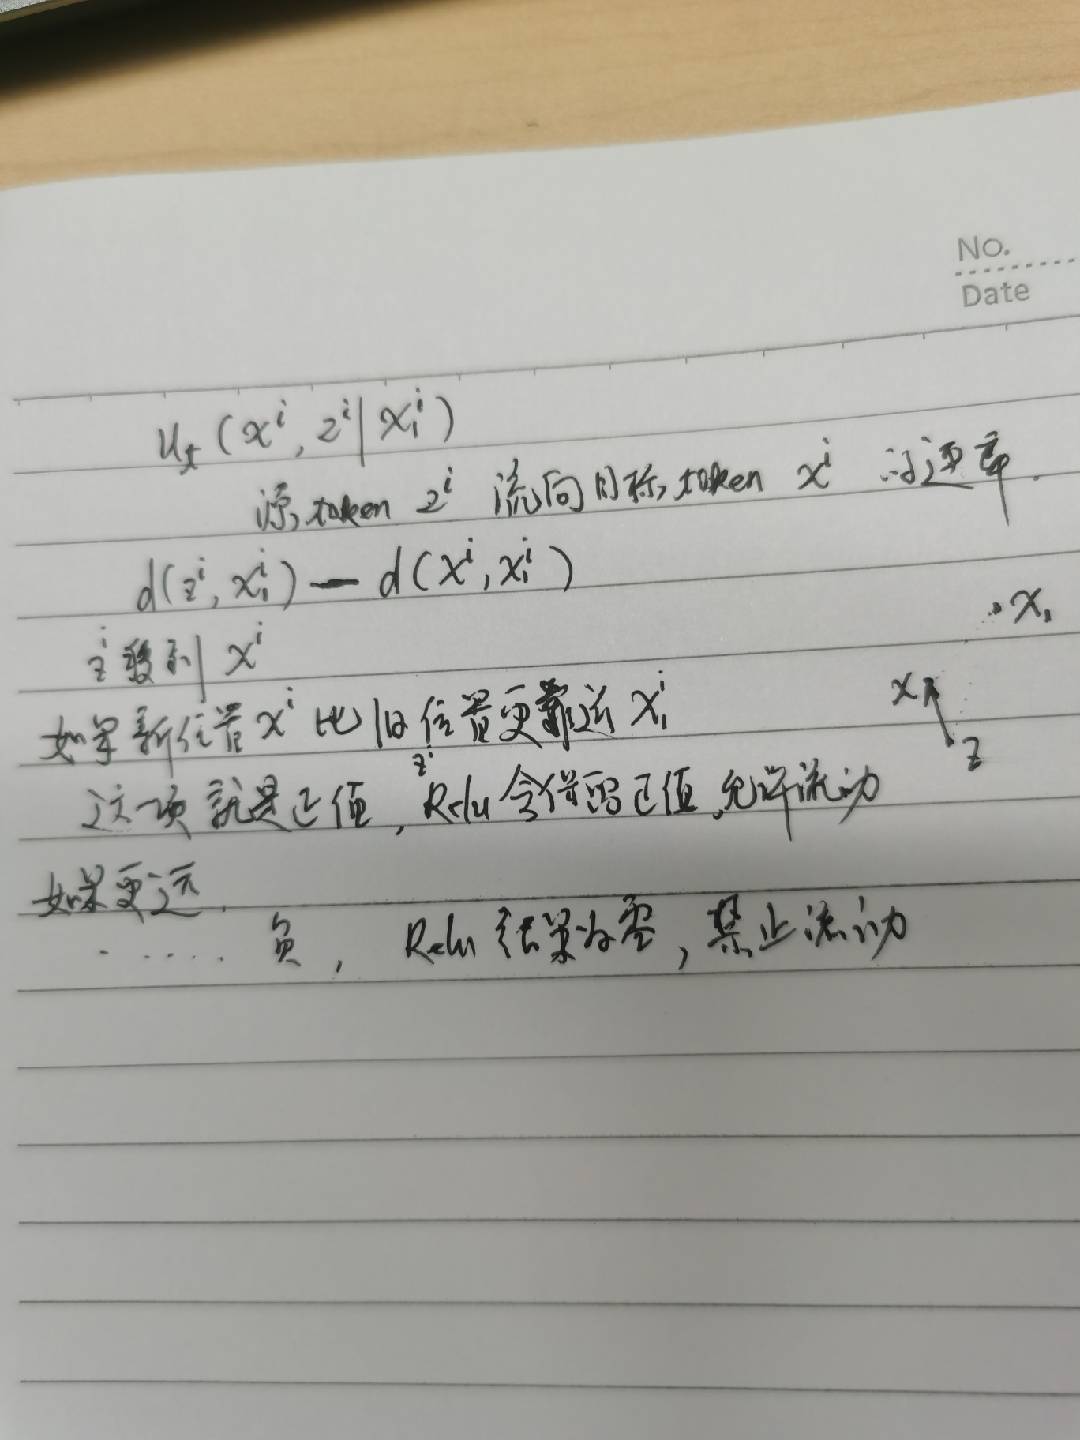 No.
Date
u_t(x^i, z^i | x_1^i)
源 token z^i 流向目标 token x^i 的速率.
d(z^i, x_1^i) — d(x^i, x_1^i)
z^i 移到 x^i
x_1
x
z
如果新位置 x^i 比旧位置更靠近 x_1^i
z^i
这一项就是正值, Relu 会保留正值, 允许流动
如果更远.
...... 负, Relu 结果为零, 禁止流动